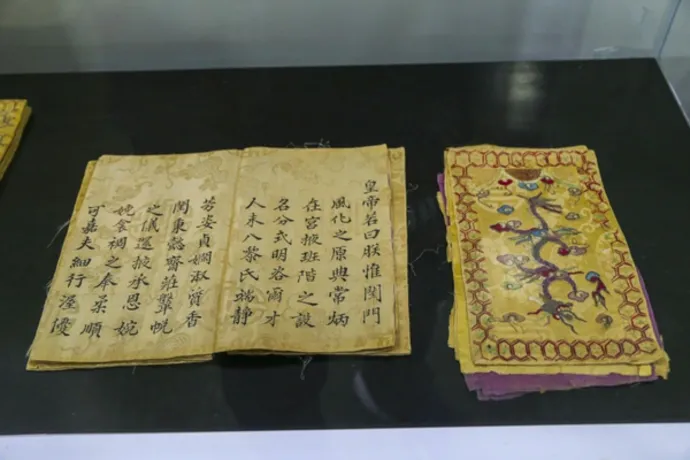 皇帝若曰朕惟閨門
風化之原典常炳
在宮掖班階之設
名分式明咨爾才
人未入黎氏端靜
芳姿貞嫻淑質香
閨秉懿齋莊鞶帨
之儀選掖承恩婉
娩衾裯之奉柔順
可嘉夫細行 優